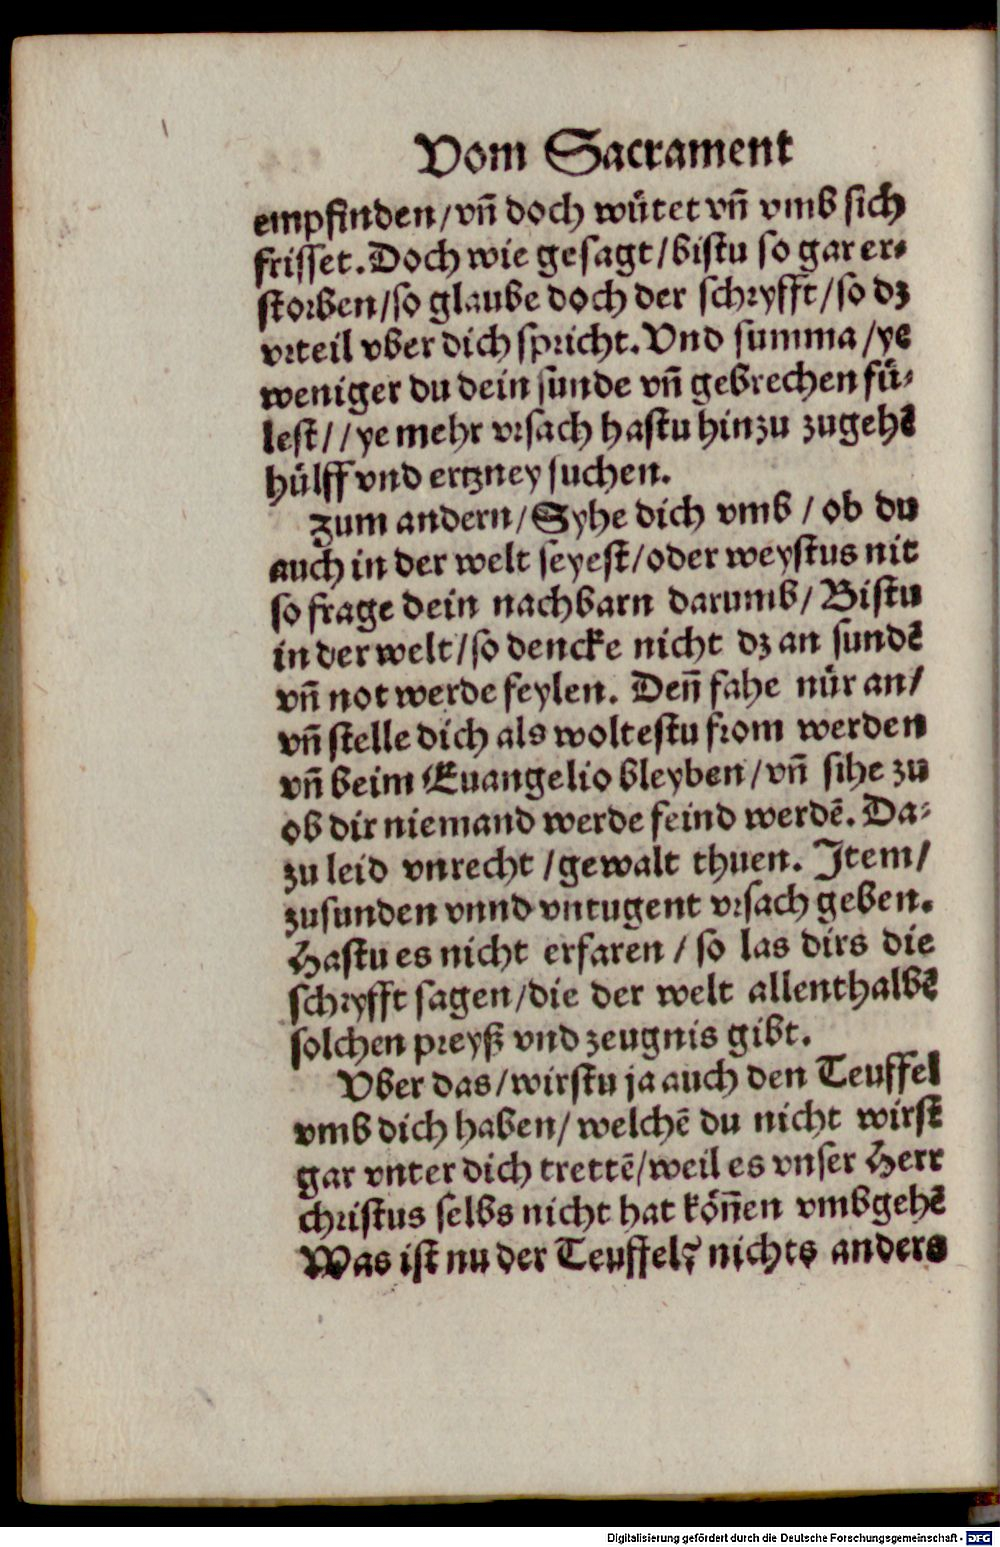 Vom Sacrament
empfinden/vñ doch wütet vñ vmb sich
frisset. Doch wie gesagt/bistu so gar er⸗
storben/so glaube doch der schryfft/so dz
vrteil vber dich spricht. Vnd summa/ye
weniger du dein sunde vñ gebrechen fü⸗
lest//ye mehr vrsach hastu hinzu zugehē
hülff vnd ertzney suchen.
Zum andern/Syhe dich vmb/ob du
auch in der welt seyest/oder weystus nit
so frage dein nachbarn darumb/Bistu
in der welt/so dencke nicht dz an sundē
vñ not werde feylen. Deñ fahe nür an/
vñ stelle dich als woltestu from werden
vñ beim Euangelio bleyben/vñ sihe zu
ob dir niemand werde feind werdē. Da⸗
zu leid vnrecht/gewalt thuen. Item/
zusunden vnnd vntugent vrsach geben.
Hastu es nicht erfaren/so las dirs die
schryfft sagen/die der welt allenthalbē
solchen preyß vnd zeugnis gibt.
Vber das/wirstu ja auch den Teuffel
vmb dich haben/welchē du nicht wirst
gar vnter dich trettē/weil es vnser Herr
christus selbs nicht hat köñen vmbgehē
Was ist nu der Teuffel? nichts anders
Digitalisierung gefördert durch die Deutsche Forschungsgemeinschaft - DFG